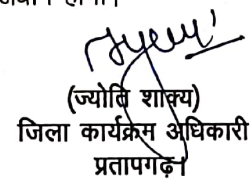 (ज्योति शाक्य)
जिला कार्यक्रम अधिकारी
प्रतापगढ़।